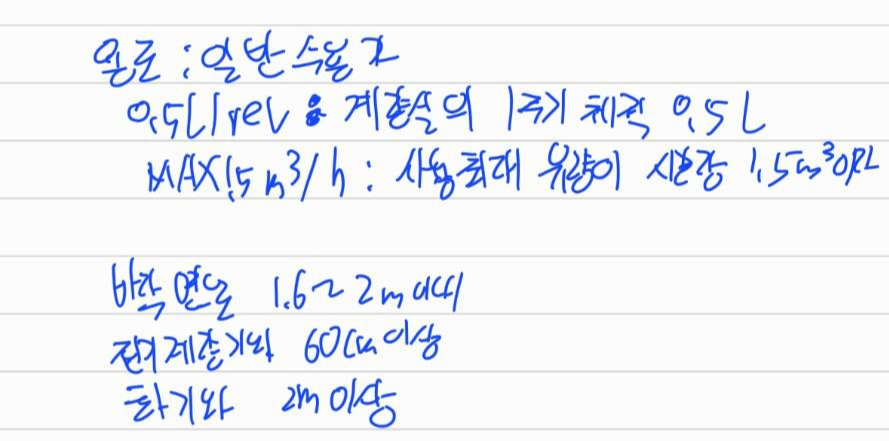 용도 : 일반수용가
0.5L/rev : 계량실의 1주기 체적 0.5L
MAX 1.5m³/h : 사용최대 유량이 시간당 1.5m³이다
바닥면으로 1.6~2m 이내
전기계량기와 60cm 이상
화기와 2m 이상